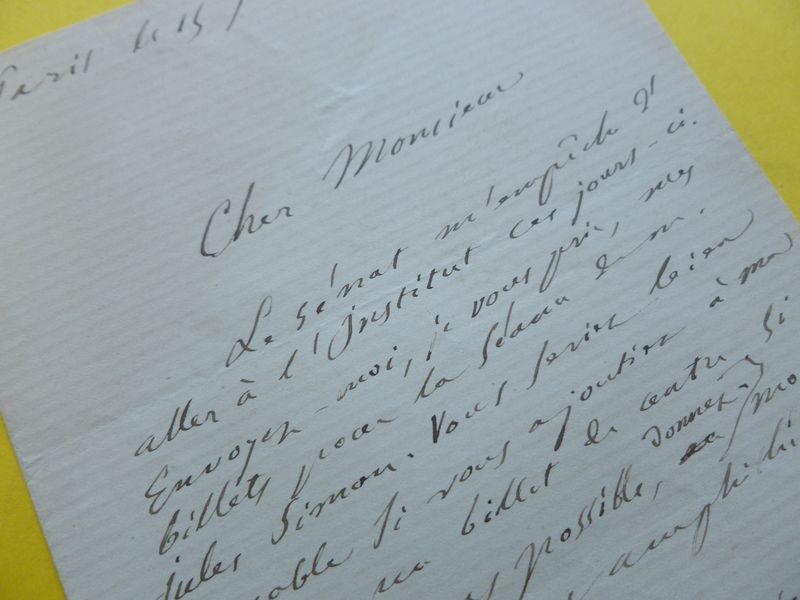 Paris le 15
Cher Monsieur
Le Sénat m'empêche d'
aller à l'Institut ces jours-ci.
Envoyez-moi, je vous prie, mes
billets pour la Séance de m.
Jules Simon. Vous seriez bien
aimable si vous ajoutiez à ma
un billet de centre. Si
possible, donnez
amphithé